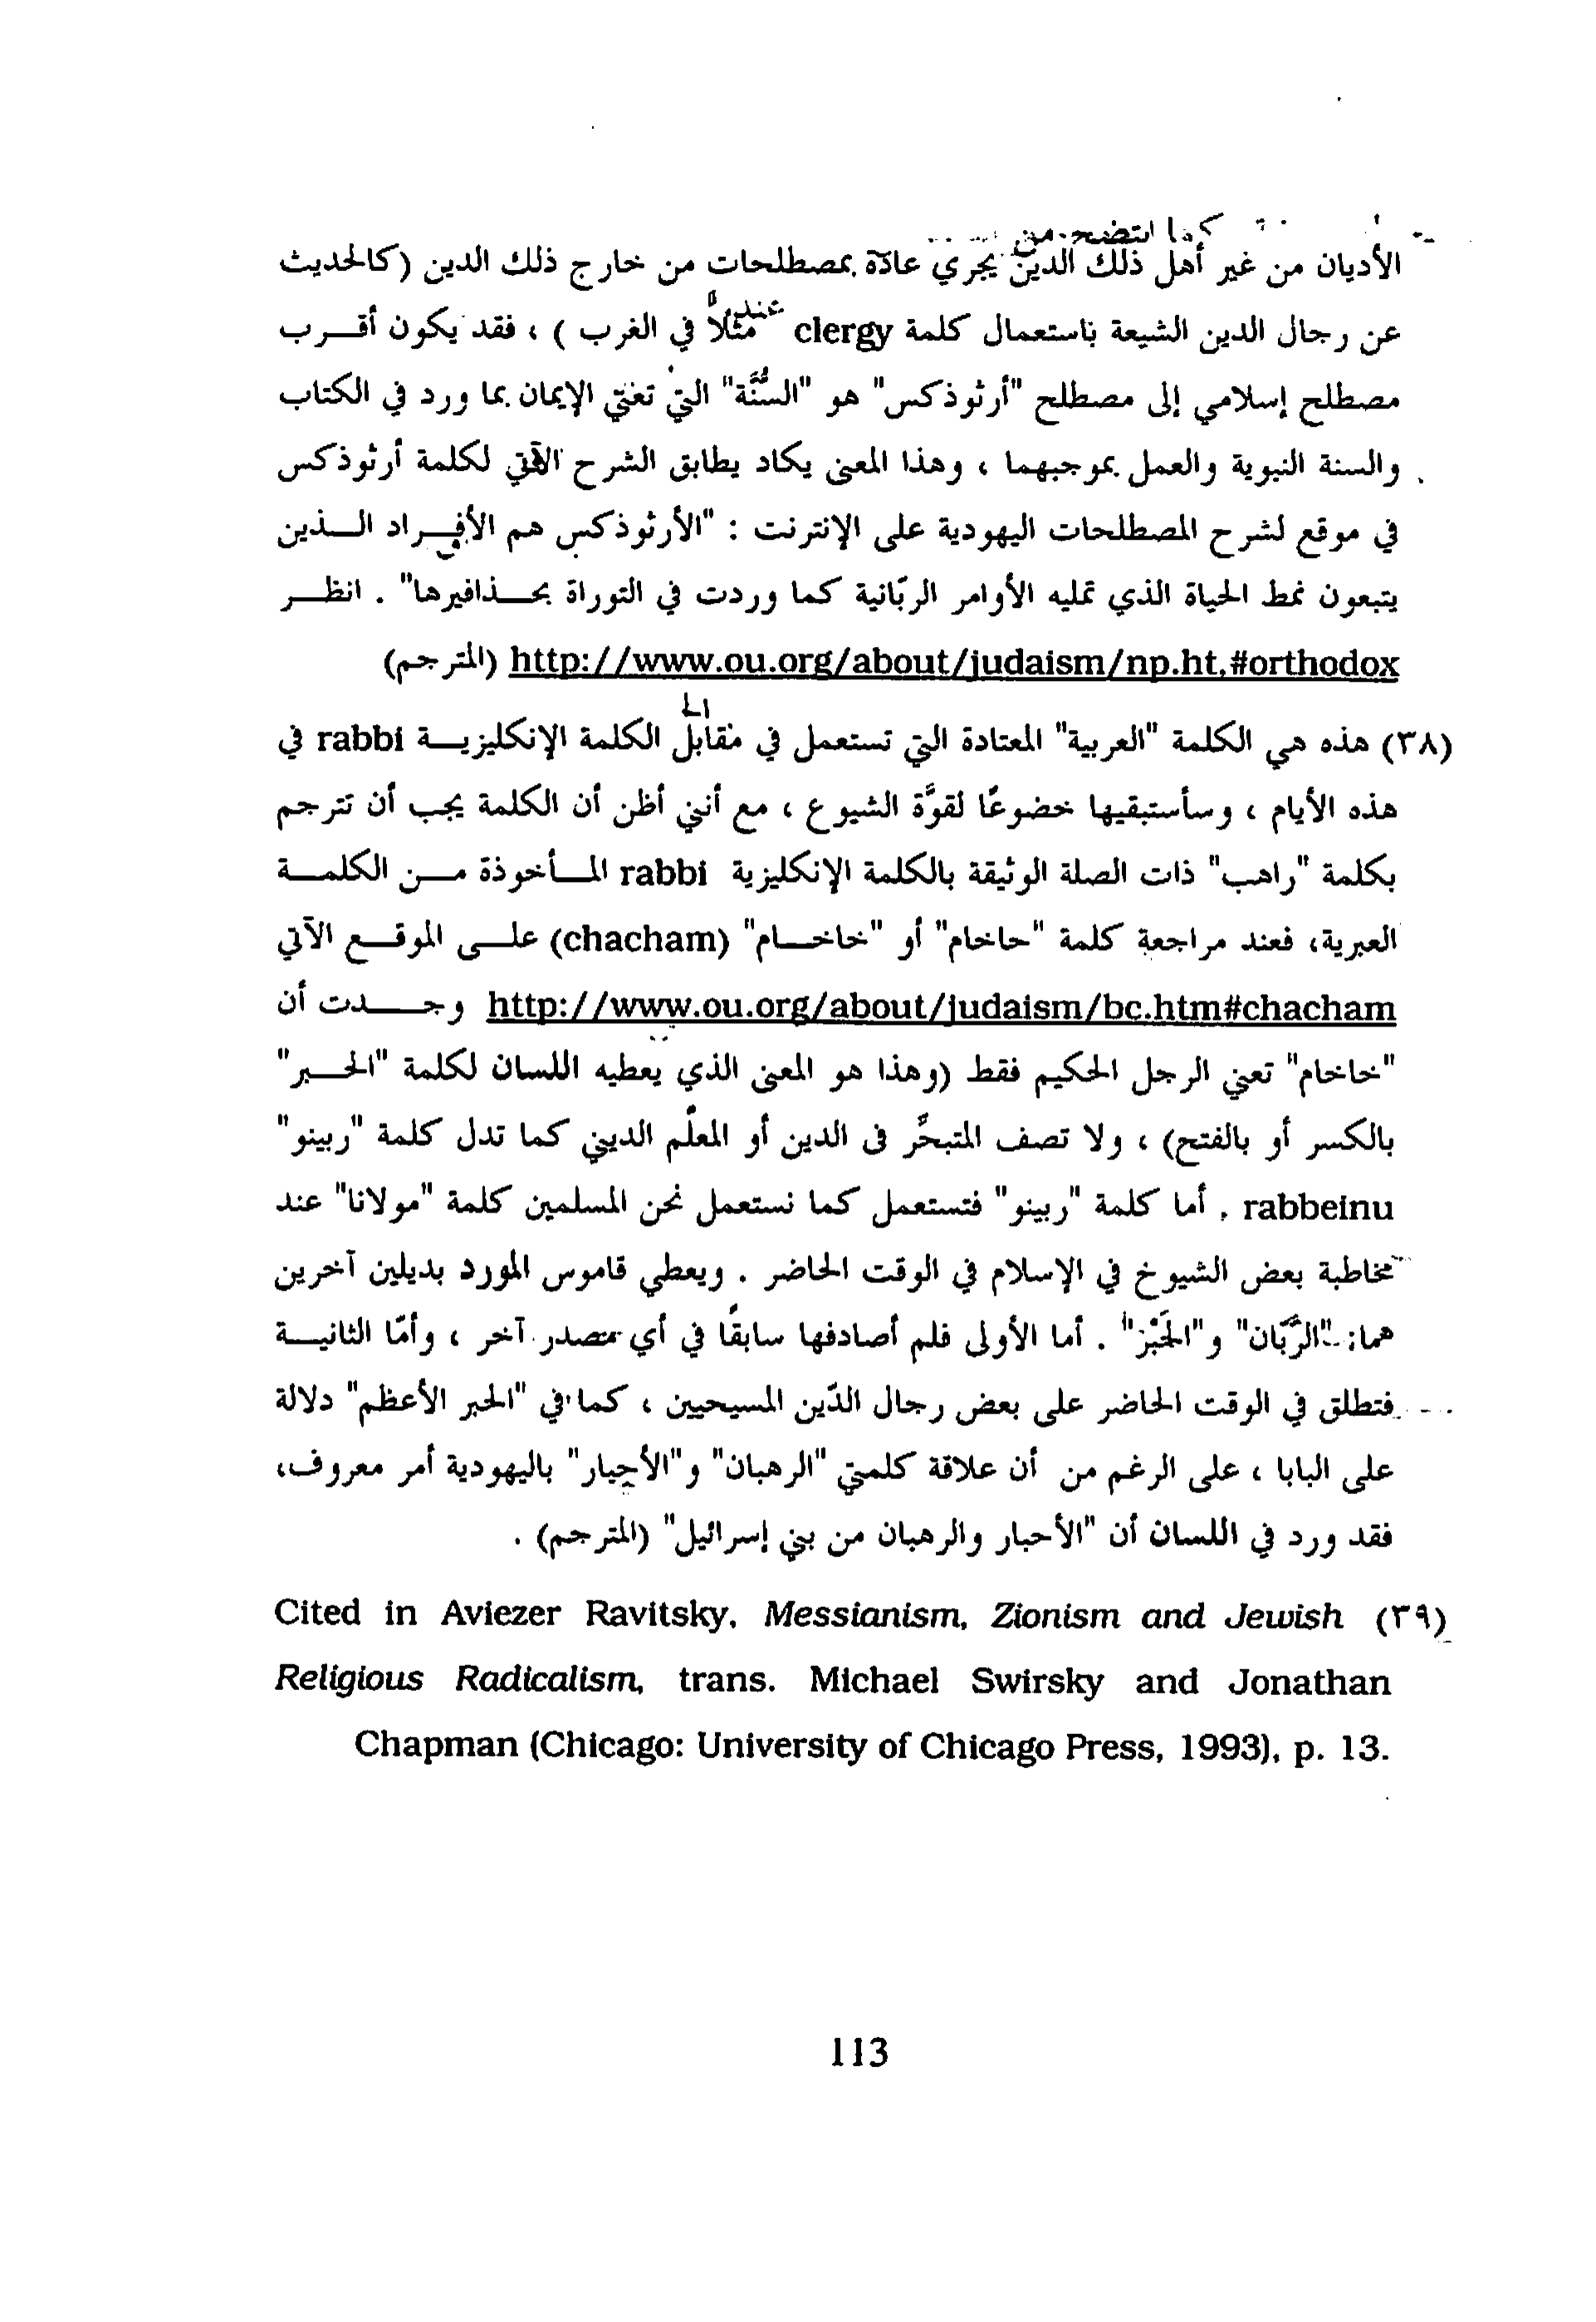 كما اتضح من
الأديان من غير أهل ذلك الدين يجري عادة بمصطلحات من خارج ذلك الدين (كالحديث
عن رجال الدين الشيعة باستعمال كلمة clergy مثلاً في الغرب ) ، فقد يكون أقــرب
مصطلح إسلامي إلى مصطلح "أرثوذكس" هو "السُّنَّة" التي تعني الإيمان بما ورد في الكتاب
والسنة النبوية والعمل بموجبهما ، وهذا المعنى يكاد يطابق الشرح الآتي لكلمة أرثوذكس
في موقع لشرح المصطلحات اليهودية على الإنترنت : "الأرثوذكس هم الأفــراد الــذين
يتبعون نمط الحياة الذي تمليه الأوامر الربّانية كما وردت في التوراة بحــذافيرها" . انظــر
http://www.ou.org/about/judaism/np.ht,#orthodox (المترجم)
(٣٨) هذه هي الكلمة "العربية" المعتادة التي تستعمل في مقابل الكلمة الإنكليزيــة rabbi في
هذه الأيام ، وسأستبقيها خضوعًا لقوَّة الشيوع ، مع أنني أظن أن الكلمة يجب أن تترجم
بكلمة "راهب" ذات الصلة الوثيقة بالكلمة الإنكليزية rabbi المــأخوذة مــن الكلمــة
العبرية، فعند مراجعة كلمة "حاخام" أو "خاخــام" (chacham) علــى الموقــع الآتي
http://www.ou.org/about/judaism/bc.htm#chacham وجــدت أن
"خاخام" تعني الرجل الحكيم فقط (وهذا هو المعنى الذي يعطيه اللسان لكلمة "الحــبر"
بالكسر أو بالفتح) ، ولا تصف المتبحَّر فى الدين أو المعلّم الديني كما تدل كلمة "ربينو"
rabbeinu . أما كلمة "ربينو" فتستعمل كما نستعمل نحن المسلمين كلمة "مولانا" عند
مخاطبة بعض الشيوخ في الإسلام في الوقت الحاضر . ويعطي قاموس المورد بديلين آخرين
هما: "الرُّبّان" و"الحَبْر" . أما الأولى فلم أصادفها سابقًا في أي مصدر آخر ، وأمّا الثانيــة
فتطلق في الوقت الحاضر على بعض رجال الدّين المسيحيين ، كما في "الحبر الأعظم" دلالة
على البابا ، على الرغم من أن علاقة كلمتي "الرهبان" و"الأحبار" باليهودية أمر معروف،
فقد ورد في اللسان أن "الأحبار والرهبان من بني إسرائيل" (المترجم) .
(٣٩) Cited in Aviezer Ravitsky, Messianism, Zionism and Jewish
Religious Radicalism, trans. Michael Swirsky and Jonathan
Chapman (Chicago: University of Chicago Press, 1993), p. 13.
113